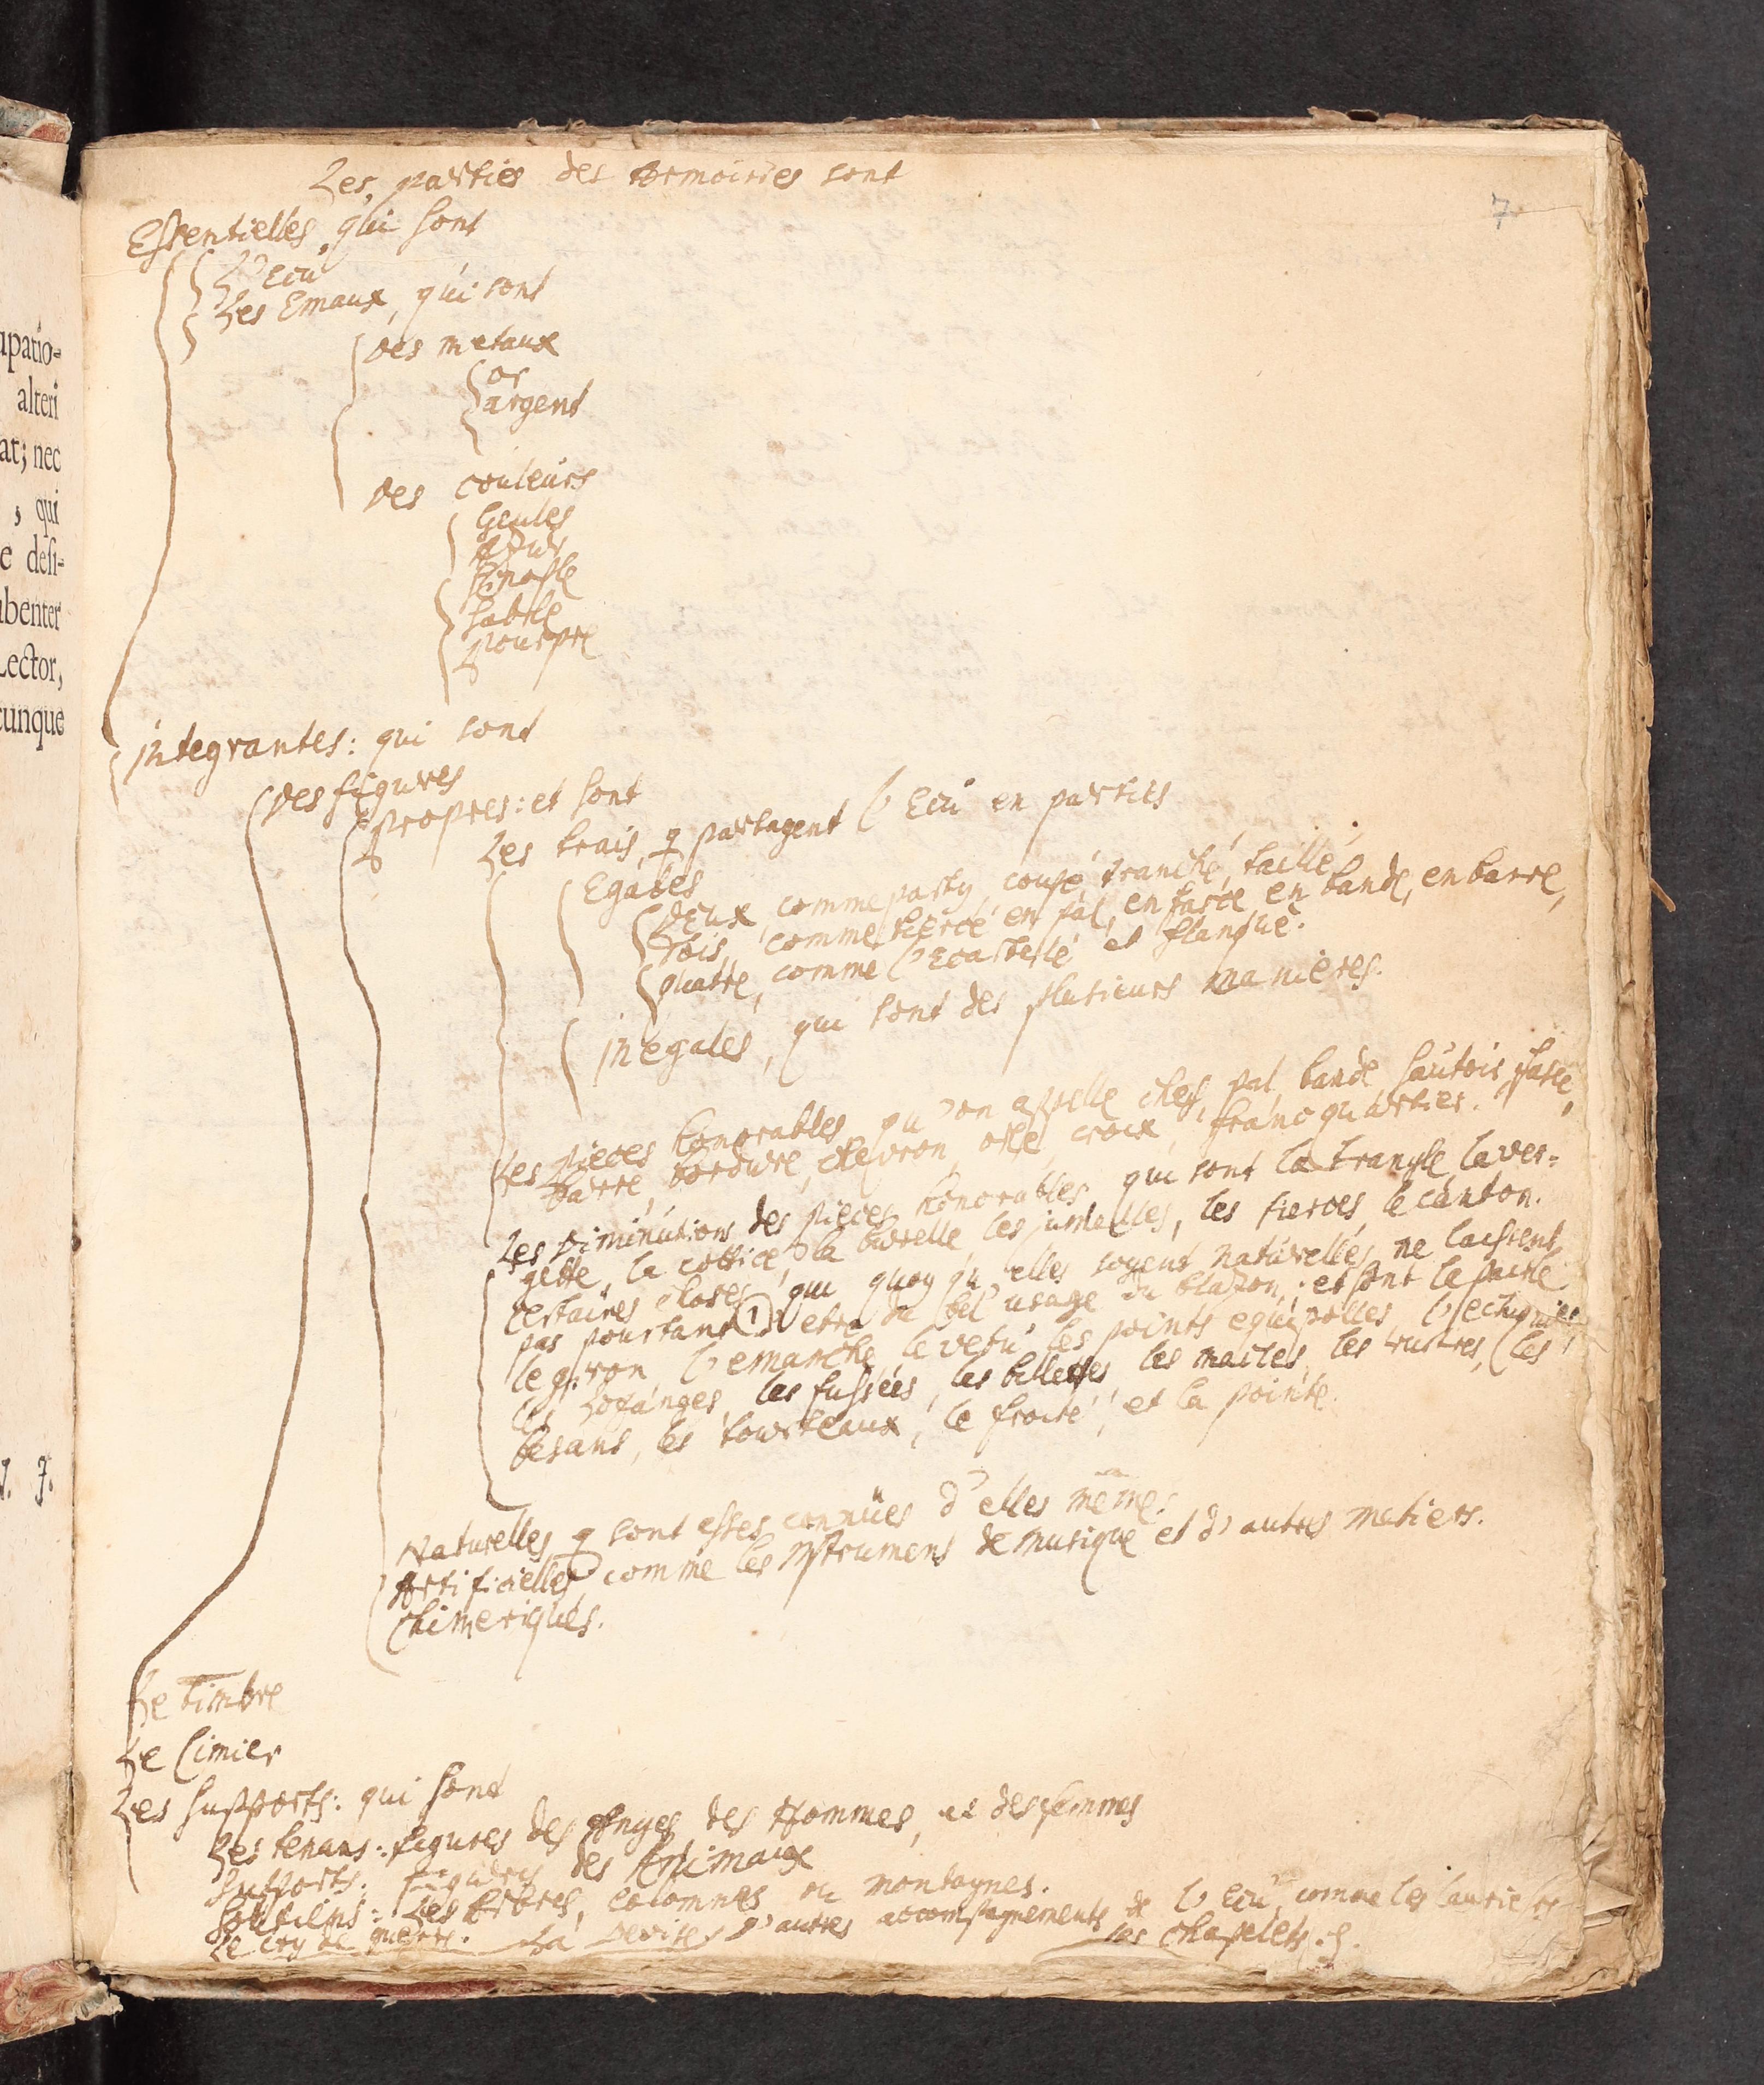 upatio-
alteri
at; nec
, qui
e desi-
ibenter
Lector,
cunque
7
Les parties des Armoiries sont
Essentielles, qui sont
L'Ecu
Les Emaux, qui sont
Des metaux
or
argent
Des couleurs
Geules
Azur
Sinople
Sable
Pourpre
integrantes: qui sont
Des figures
propres: et sont
Les trais, q partagent l'Ecu en parties
Egales
Deux, comme party, coupé, tranché, taillé,
Trois, comme tiercé en pal, en fasce, en bande, en barre,
Quatre, comme l'Ecartelé et flanqué.
inégales, qui sont des plusieurs manieres.
Les pieces honorables, qu'on appelle chef, pal, bande, sautoir, fasce,
barre, bordure, chevron, orle, croix, franc quartier.
Les Diminutions des pieces honorables, qui sont la trangle, la ver-
gette, la cottice, la burelle, les jumelles, les tierces, le canton.
Certaines choses, qui quoy qu'elles soyent naturelles, ne laissent
pas pourtant (1) etre du bel usage du blazon: et sont le pairle
le giron, l'emanche, le vetu, les points equipolles, l'echiquier
les Lozanges, les fussées, les billettes, les macles, les rustres, les
besans, les tourteaux, le froité, et la pointe.
Naturelles q sont asses connües d'elles même.
Artificielles comme les instrumens de musique et d'autres metiers.
Chimeriques.
Le Timbre
Le Cimier
Les supports: qui sont
Les tenans: figures des Anges, des Hommes, et des femmes
Supports: figures des Animaux
Soutiens: Les Arbres, colomnes ou montagnes.
Le cry de guerre. La Devise. D'autres accompagnements de l'Ecu, comme les lauriers
les chapelets.